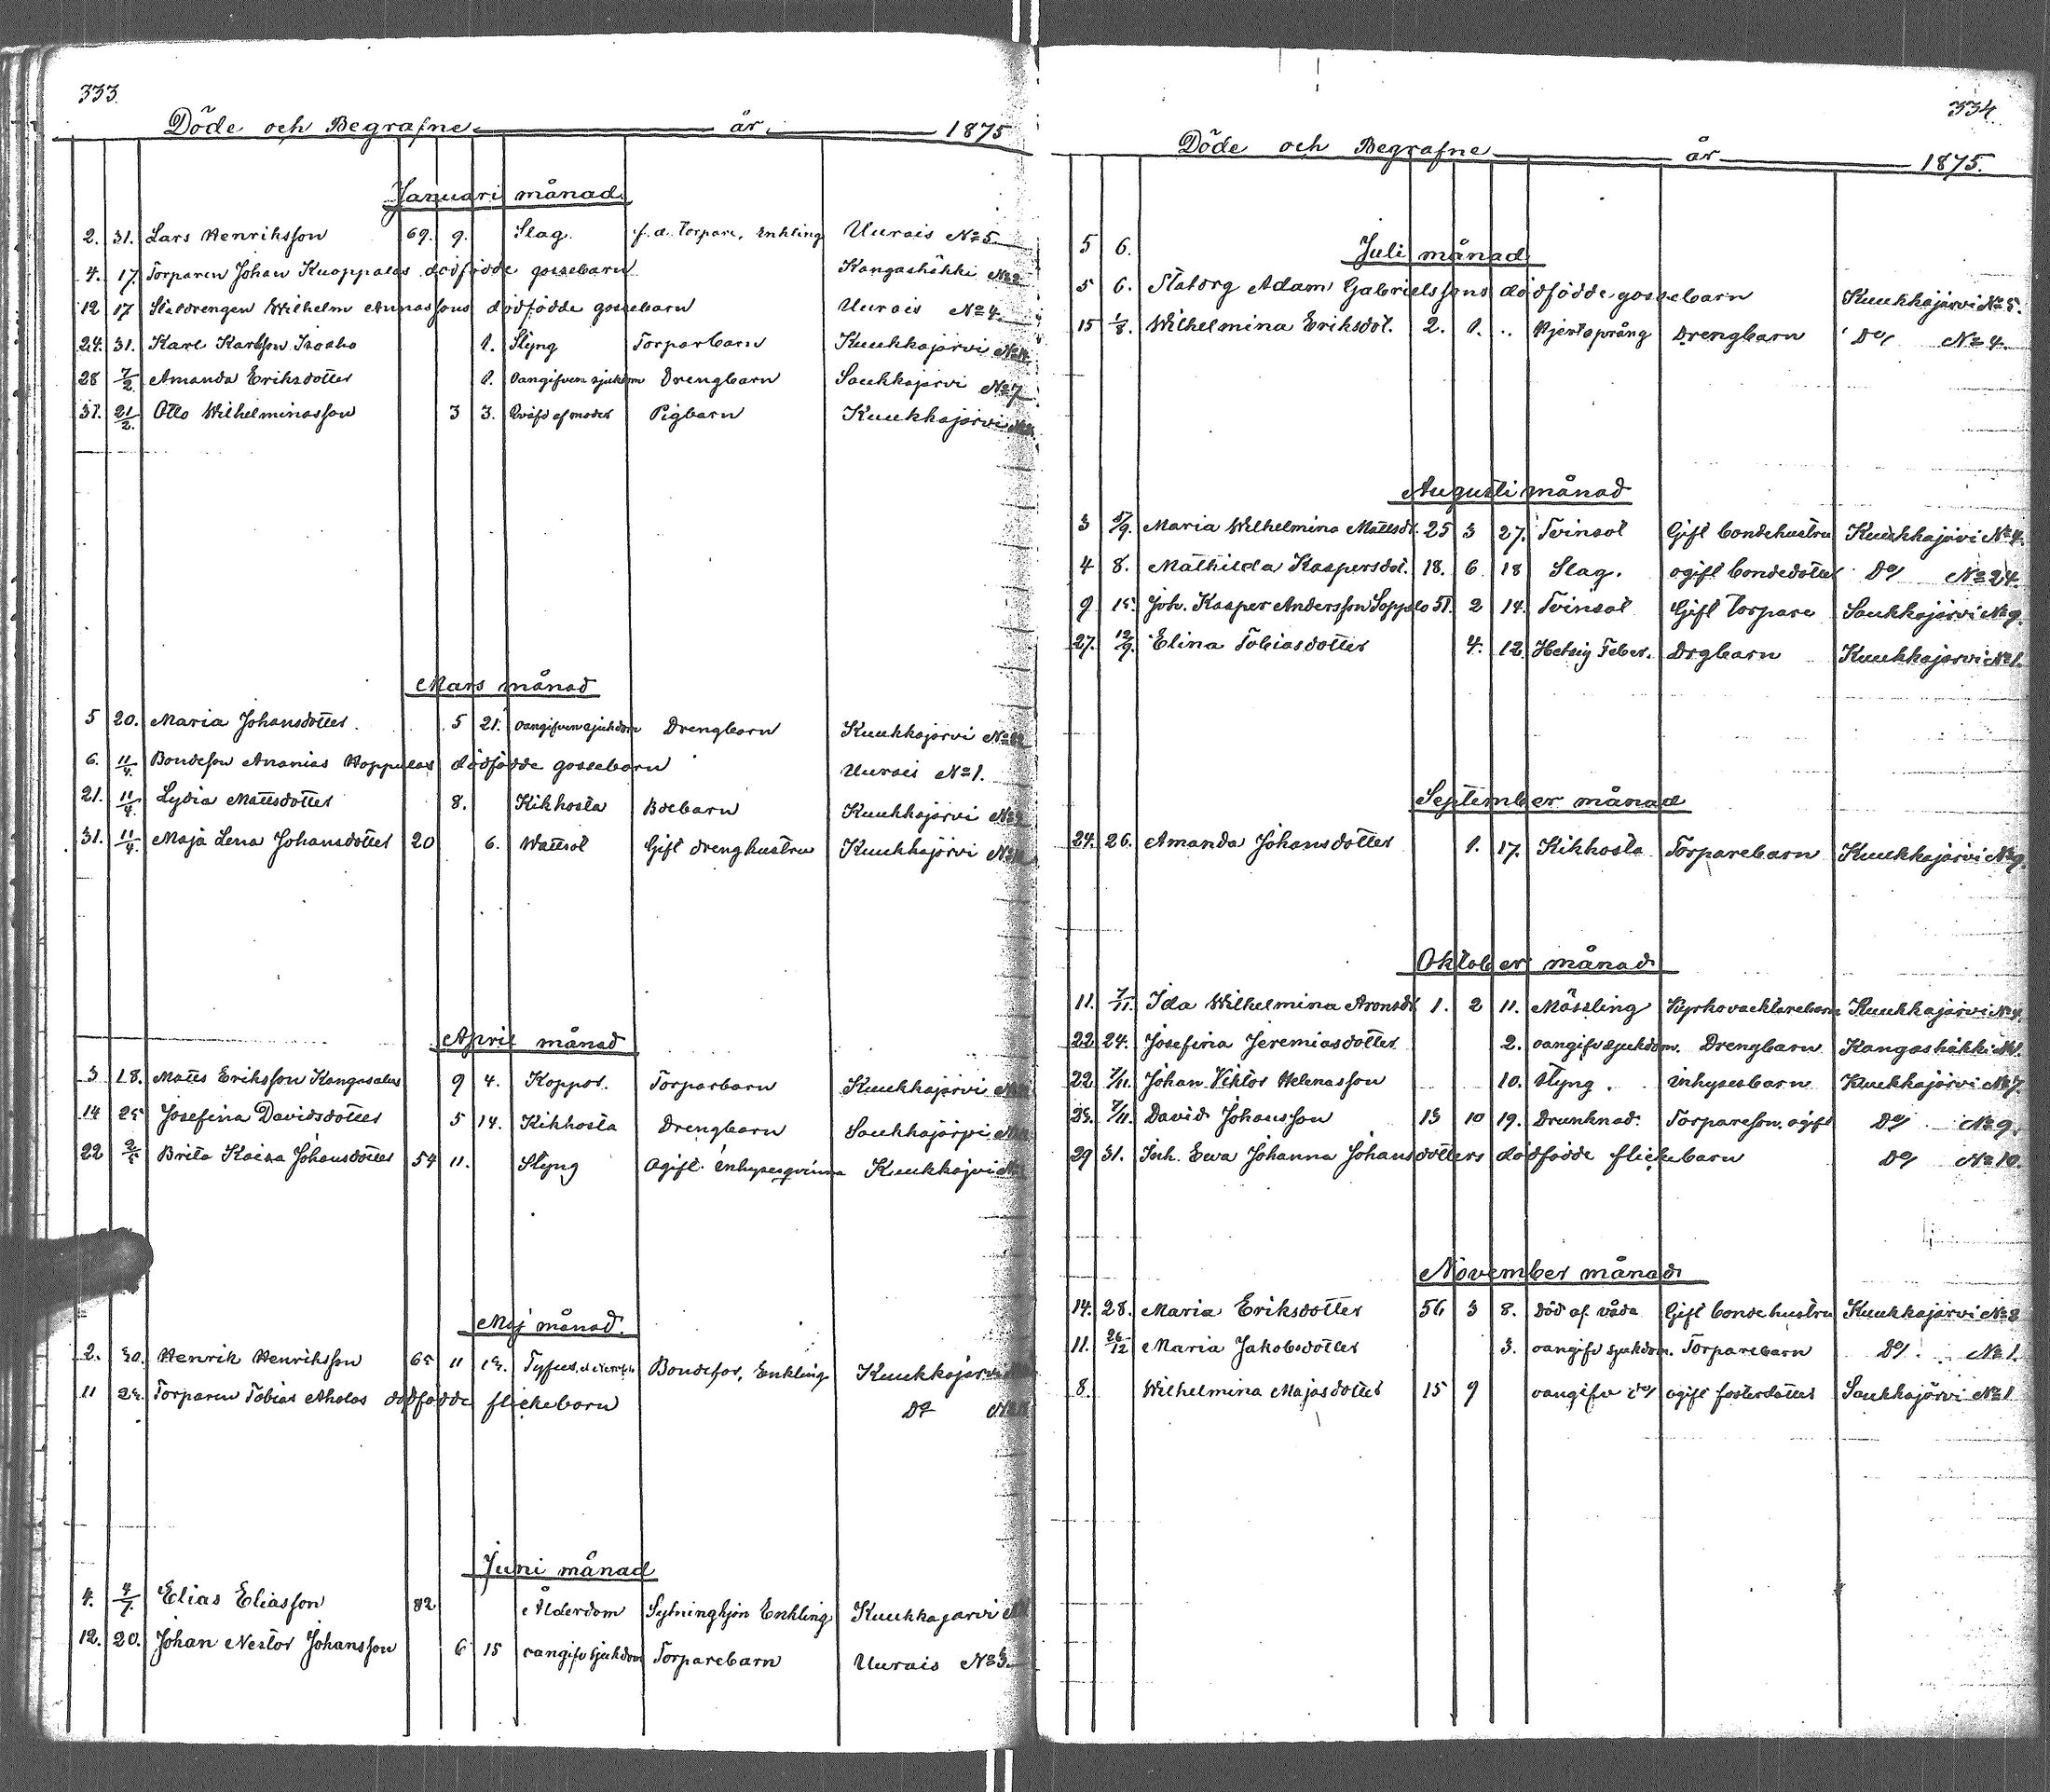 333.
Döde och Begrafne år 1875
Januari månad.
2. 31. Lars Henriksson 69. 9. Slag. f.d. Torpare, Enkling Uurais No 5.
4. 17. Torparen Johan Knoppalas dödfödde gossebarn Kangashäkki No 2
12 17 Statdrengen Wilhelm Annassons dödfödde gossebarn Uurais No 4.
24. 31. Karl Karlsson Isoaho 1. Styng Torparbarn Kuukkajärvi
28 7/2 Amanda Eriksdotter 1. Oangifven sjukdom Drengbarn Saukkajärvi No 7
31. 21/2. Otto Wilhelminasson 3 3. Qväfd af moder Pigbarn Kuukkajärvi
Mars månad
5 20. Maria Johansdotter. 5 21. oangifven sjukdom Drengbarn Kuukkajärvi
6. 11/4. Bondeson Ananias Hoppulas dödfödde gossebarn Uurais No 1.
21. 11/4. Lydia Mattsdotter 8. Kikhosta Bdebarn Kuukkajärvi
31. 11/4. Maja Lena Johansdotter 20 6. Wattsot Gift drenghustru Kuukkajärvi
April månad
3 18. Matts Eriksson Kangasalus 9 4. Koppor. Torparbarn Kuukkajärvi
14 25 Josefina Davidsdotter 5 14. Kikhosta Drengbarn Saukkajärvi
22 2/5 Brita Kaisa Johansdotter 54 11. Styng Ogift. inhysesqvinna Kuukkajvi
Maj månad.
2. 30. Henrik Henriksson 65 11 15. Tyfus Bondefar, Enkling Kuukkajärvi
11 25. Torparen Tobias Aholas dödfödde flickebarn Do
Juni månad
4. 4/7. Elias Eliasson 82 Ålderdom Sytninghjon Enkling Kuukkajärvi
12. 20. Johan Nestor Johansson 6 15 oangifv sjukdom Torparebarn Uurais No 3.
334.
Döde och Begrafne år 1875.
5 6. Juli månad
5 6. Statdrg Adam Gabrielssons dödfödde gossebarn Kuukkajärvi No 5.
15 1/8. Wilhelmina Eriksdot. 2. 1. .. Hjertsprång Drengbarn Do No 4.
Augusti månad
3 5/9. Maria Wilhelmina Mattsdt. 25 3 27. Tvinsot Gift bondehustru Kuukkajärvi No 4.
4 8. Mathilda Kaspersdot. 18. 6 18 Slag. ogift bondedotter Do No 24.
9 15. Joh. Kasper Andersson Soppelo 51. 2 14. Tvinsot Gift Torpare Saukkajärvi No 9.
27. 12/9. Elina Tobiasdotter 4. 12. Hetsig Feber. Drgbarn Kuukkajärvi No 1.
September månad
24. 26. Amanda Johansdotter 1. 17. Kikhosta Torparebarn Kuukkajärvi No 9.
Oktober månad
11. 7/11. Ida Wilhelmina Aronsdt 1. 2 11. Mässling Kyrkovaktarebarn Kuukkajärvi No 4.
22 24. Josefina Jeremiasdotter 2. oangifv sjukdom. Drengbarn Kangashäkki No 1.
22 7/11. Johan Viktor Helenasson 10. Styng. inhysesbarn Kuukkajärvi No 7.
25. 7/11. David Johansson 13 10 19. Drunknad. Torpareson. ogift Do No 9.
29 31. Inh. Ewa Johanna Johansdotters dödfödde flickebarn Do No 10.
November månad
14. 28. Maria Eriksdotter 56 3 8. Död af våda Gift bondehustru Kuukkajärvi No 8
11. 26/12 Maria Jakobsdotter 3. oangifv sjukdom. Torparebarn Do No 1.
8. Wilhelmina Majasdotter 15 9 oangifv do ogift fosterdotter Saukkajärvi No 1